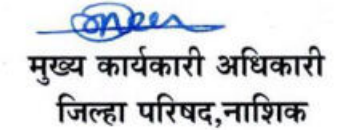 मुख्य कार्यकारी अधिकारी
जिल्हा परिषद,नाशिक